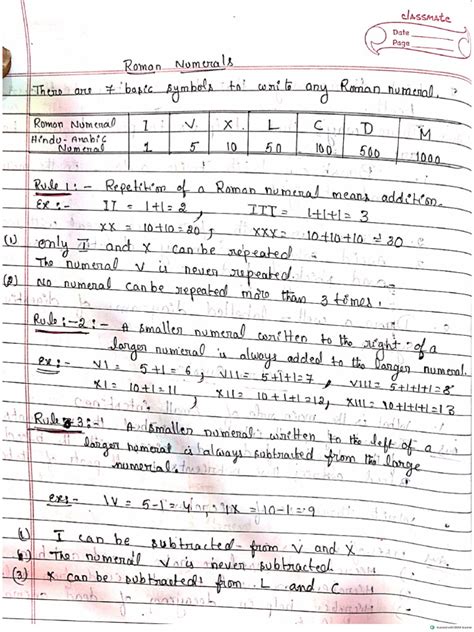 classmate
Date
Page
Roman Numerals
There are 7 basic symbols to write any Roman numeral.
Roman Numeral I V X L C D M
Hindu-Arabic Numeral 1 5 10 50 100 500 1000
Rule 1:- Repetition of a Roman numeral means addition.
Ex:- II = 1+1= 2, III = 1+1+1= 3
XX = 10+10=20; XXX= 10+10+10 = 30
(1) only I and X can be repeated.
The numeral V is never repeated.
(2) No numeral can be repeated more than 3 times.
Rule:-2:- A smaller numeral written to the right of a
larger numeral is always added to the larger numeral.
Ex:- VI = 5+1=6, VII = 5+1+1=7, VIII= 5+1+1+1=8
XI= 10+1=11, XII= 10+1+1=12, XIII= 10+1+1+1=13
Rule 3:- A smaller numeral written to the left of a
larger numeral is always subtracted from the large
numeral.
ex:- IV = 5-1=4, IX =10-1=9
(1) I can be subtracted from V and X.
(2) The numeral V is never subtracted.
(3) X can be subtracted from L and C